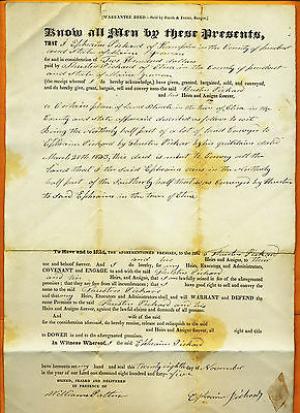 [WARRANTEE DEED—Sold by Smith & Fenno, Bangor.]
Know all Men by these Presents,
THAT I Ephraim Pickard of Hampden in the County of Penobscot
and State of Maine
for and in consideration of Two Hundred dollars
paid by Thurston Pickard of in the County of Penobscot
and State of Maine Yeoman
(the receipt whereof I do hereby acknowledge,) have given, granted, bargained, sold, and conveyed,
and do hereby give, grant, bargain, sell and convey unto the said Thurston Pickard
and his Heirs and Assigns forever,
a Certain piece of Land Situate in the Town of in the
County and State aforesaid described as follows to wit
Being the Northerly half part of a lot of land Conveyed to
Ephraim Pickard by Thurston Pickard by his quitclaim dated
March 20th 1843, this deed is meant to Convey all the
Land that I the Said Ephraim own in the Northerly
half part of the Southerly half that was Conveyed by Thurston
to Said Ephraim in the town of
To Have and to Hold, THE AFOREMENTIONED PREMISES, to the said Thurston Pickard
and his Heirs and Assigns, to their
use and behoof forever. And I do hereby, for my Heirs, Executors and Administrators,
COVENANT and ENGAGE to and with the said Thurston Pickard
and his Heirs and Assigns, that I am lawfully seized in fee of the aforegranted
premises; that they are free from all incumbrances; that I have good right to sell and convey the
same to the said Thurston Pickard
and that my Heirs, Executors and Administrators shall and will WARRANT and DEFEND the
same Premises to the said Thurston Pickard and his
Heirs and Assigns forever, against the lawful claims and demands of all persons.
And
Wife of the said
for the consideration aforesaid, do hereby remise, release and relinquish to the said
and his Heirs and Assigns forever, all right and title
to DOWER in and to the aforegranted premises.
In Witness Whereof, I the said Ephraim Pickard
have hereunto my hand and seal this Twenty eighth day of November
in the year of our Lord one thousand eight hundred and forty five
SIGNED, SEALED AND DELIVERED
IN PRESENCE OF
William
Ephraim Pickard